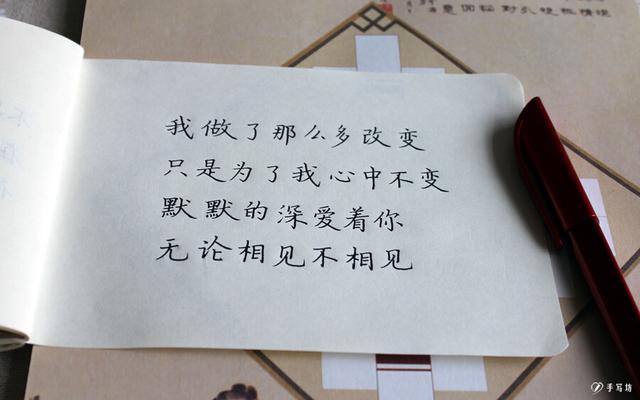 我做了那么多改变
只是为了我心中不变
默默的深爱着你
无论相见不相见
手写坊